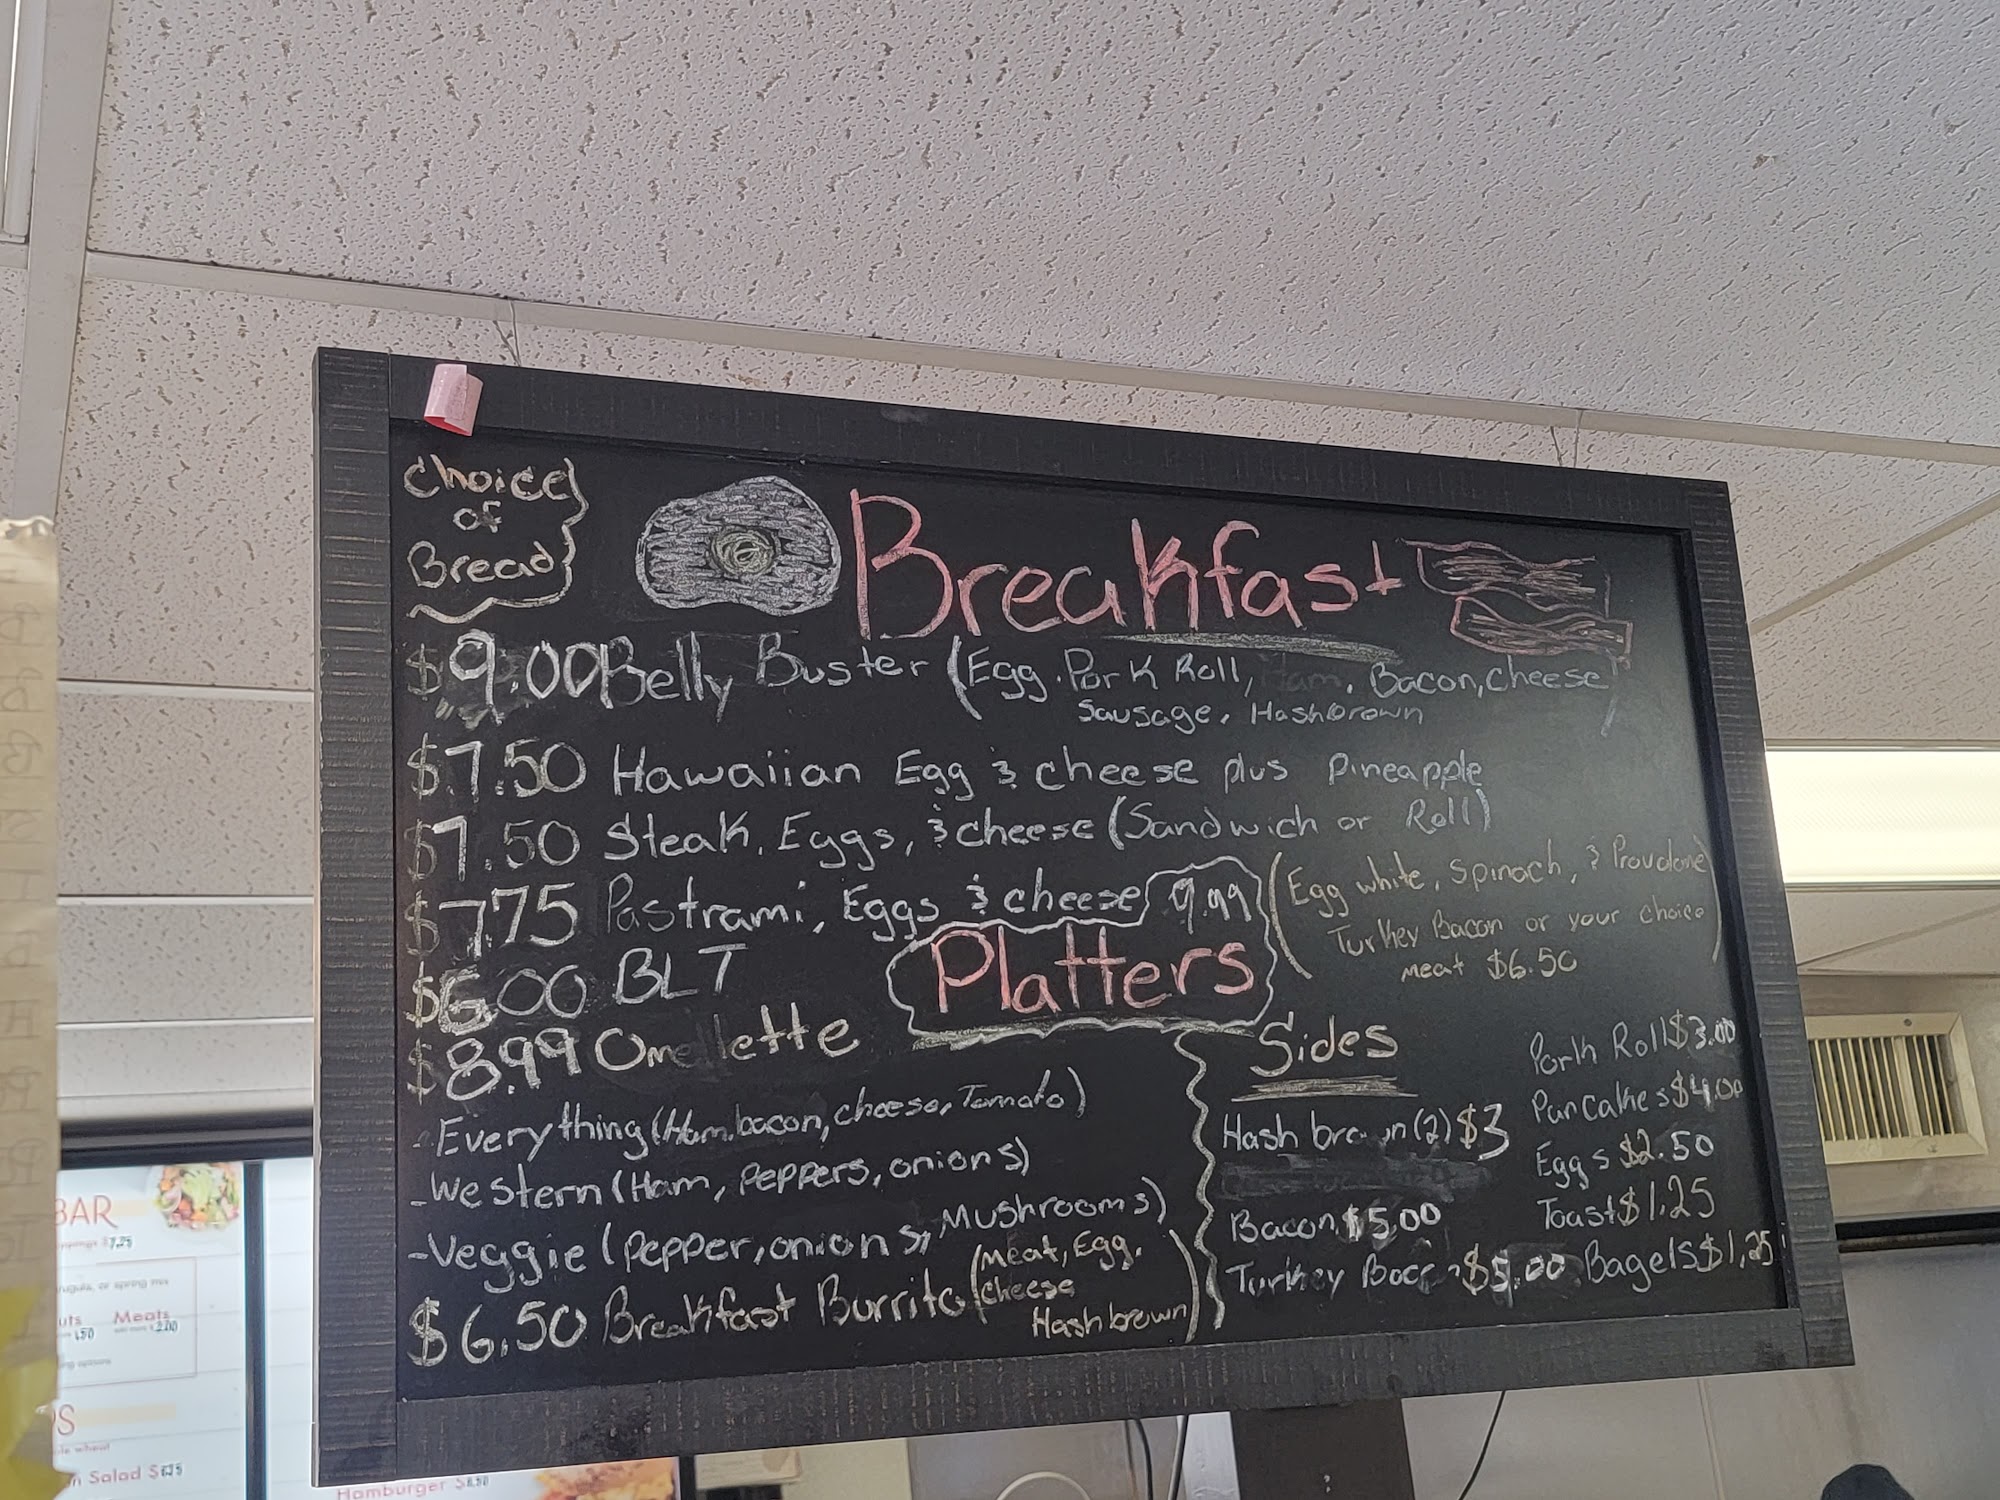 Choice
of
Bread
Breakfast
$9.00 Belly Buster (Egg. Pork Roll, Ham, Bacon, Cheese
Sausage, Hashbrown
$7.50 Hawaiian Egg & cheese plus Pineapple
$7.50 Steak, Eggs, & cheese (Sandwich or Roll)
$7.75 Pastrami, Eggs & cheese
9.99
Platters
(Egg white, Spinach, & Provolone)
Turkey Bacon or your choice
meat $6.50
$6.00 BLT
$8.99 Omellette
- Everything (Ham, bacon, cheese, Tomato)
- Western (Ham, Peppers, onions)
- Veggie (pepper, onions, Mushrooms)
$6.50 Breakfast Burrito (meat, Egg,
cheese
Hashbrown)
Sides
Hash brown (2) $3
Bacon $5.00
Turkey Bacon $5.00
Pork Roll $3.00
Pancakes $4.00
Eggs $2.50
Toast $1.25
Bagels $1.25
BAR
Meats
Salad
Hamburger